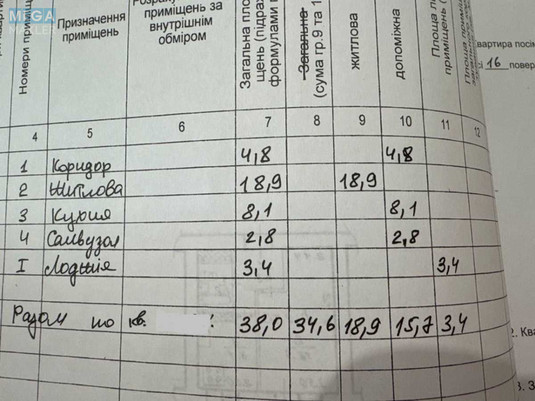 MEGA
Номери приміщ
Призначення
приміщень
приміщень за
внутрішнім
обміром
Загальна пло
щень (підрах
формулами
Загальна
(сума гр.9 та 1
житлова
допоміжна
Площа
приміщень
квартира
16 повер
4 5 6 7 8 9 10 11 12
1 Коридор 4,8 4,8
2 Житлова 18,9 18,9
3 Кухня 8,1 8,1
4 Санвузол 2,8 2,8
I Лоджія 3,4 3,4
Разом по кв. : 38,0 34,6 18,9 15,7 3,4
2. Ква
3. З